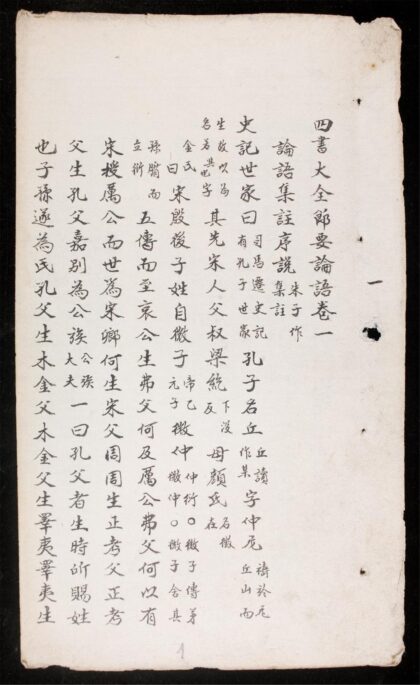 一
四書大全節要論語卷一
論語集註序說朱子作集註
史記世家曰司馬遷史記有孔子世家孔子名丘丘讀作某字仲尼禱於尼丘山而
生故以為名若字其先宋人父叔梁紇下沒反母顏氏名徵在
金氏曰宋殷後子姓自微子帝乙元子微仲仲衍○微子傳弟微仲○微子舍其
孫腯而立衍五傳而至哀公生弗父何及厲公弗父何以有
宋授厲公而世爲宋卿何生宋父周周生正考父正考
父生孔父嘉別為公族公族大夫一曰孔父者生時所賜姓
也子孫遂為氏孔父生木金父木金父生睪夷睪夷生
1